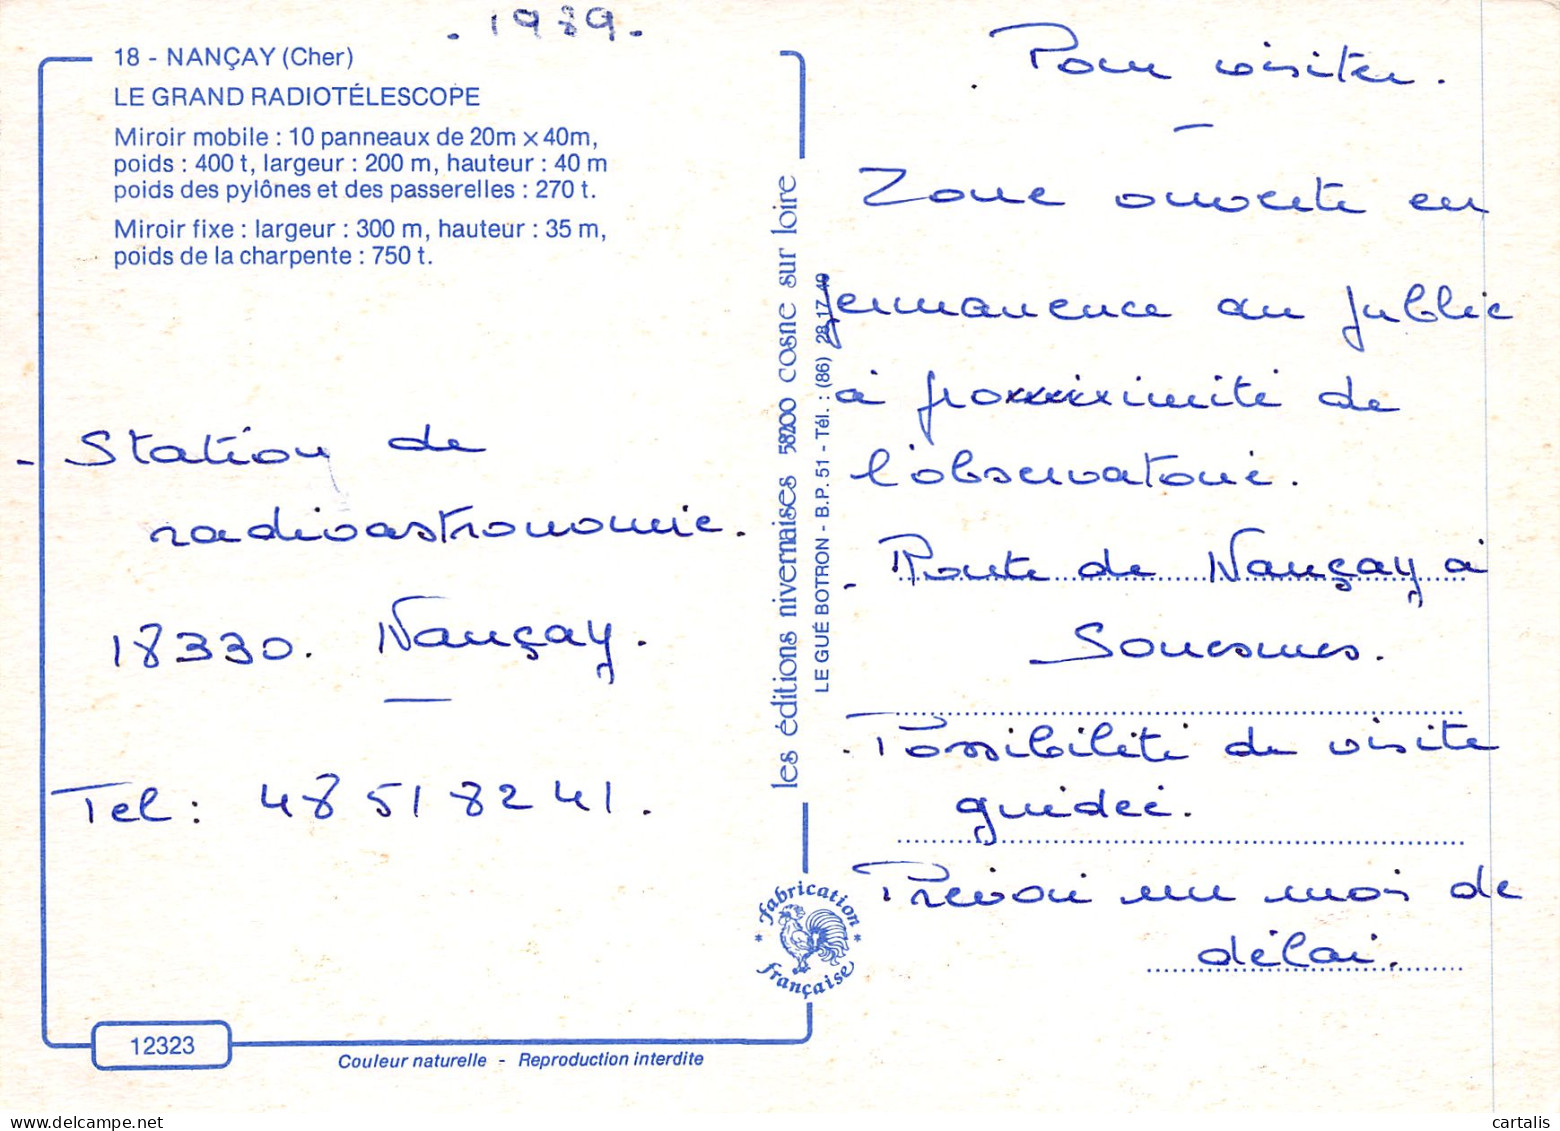 . 1989.
18 - NANÇAY (Cher)
LE GRAND RADIOTÉLESCOPE
Miroir mobile : 10 panneaux de 20m x 40m,
poids : 400 t, largeur : 200 m, hauteur : 40 m
poids des pylônes et des passerelles : 270 t.
Miroir fixe : largeur : 300 m, hauteur : 35 m,
poids de la charpente : 750 t.
- Station de
radioastronomie.
18330. Nançay.
Tel : 48 51 82 41.
12323
Couleur naturelle - Reproduction interdite
les éditions nivernaises 58200 cosne sur loire
LE GUÉ BOTRON - B.P. 51 - Tél. : (86) 28 17 49
* fabrication *
française
. Pour visiter.
Zone ouverte en
permanence au public
à proximité de
l'observatoire.
. Route de Nançay à
Souesmes.
. Possibilité de visite
guidée.
Prévoir un mois de
délai.
cartalis